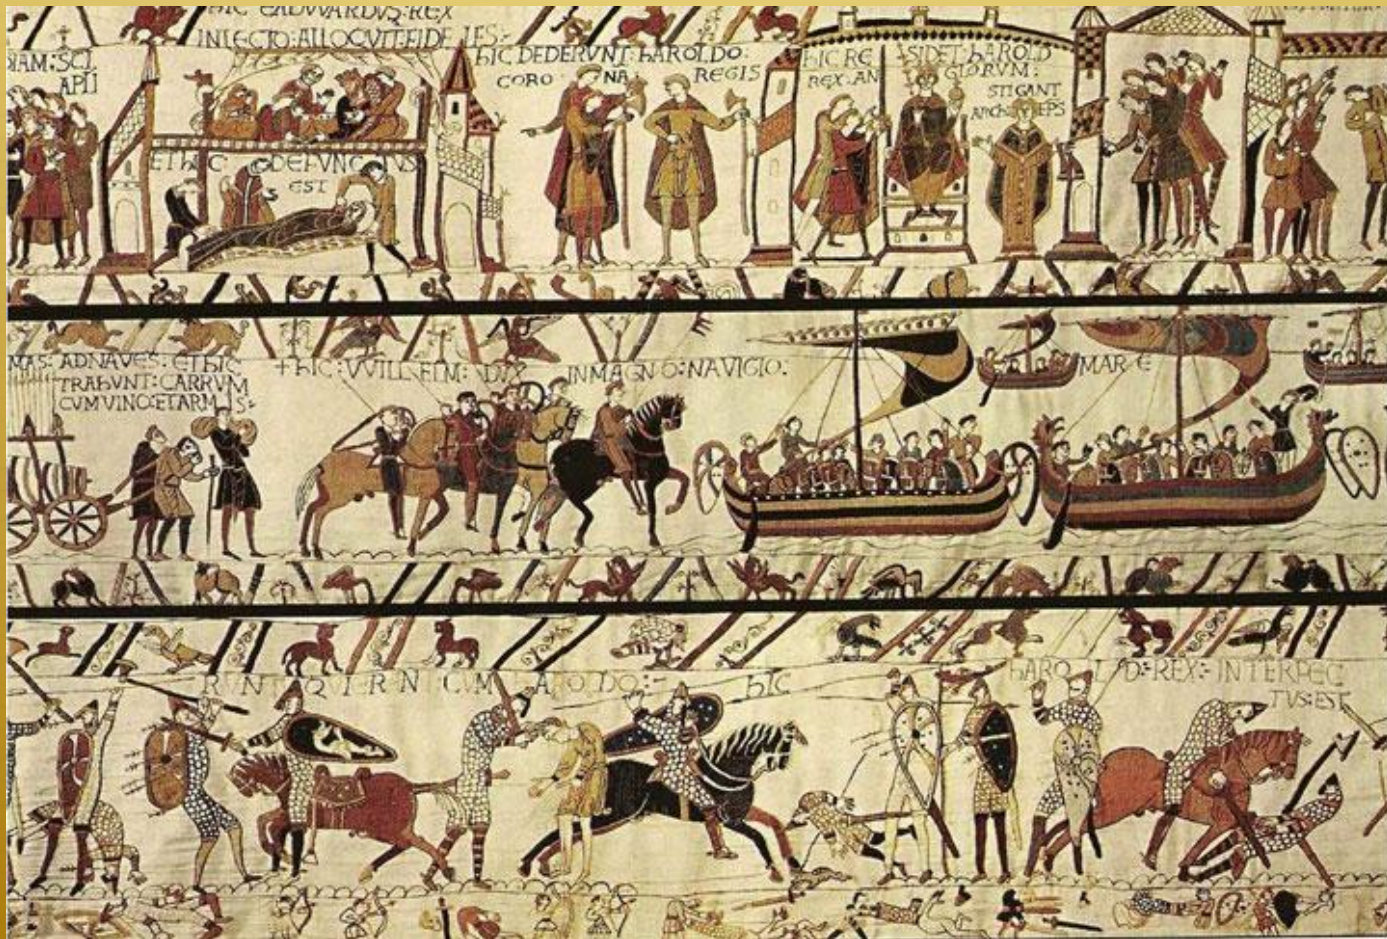 HIC EADVVARDVS:REX
INLECTO:ALLOQVIT:FIDELES:
IAM:SCI
APII
ET HIC DEFVNCTVS
EST
HIC DEDERVNT:HAROLDO:
CORONA REGIS
HIC RESIDET:HAROLD
REX:ANGLORVM:
STIGANT
ARCHIEPS
MAS:ADNAVES:ET HIC
TRAHVNT:CARRVM
CVMVINO:ETARMIS:
+HIC:VVILLELM:DVX INMAGNO:NAVIGIO:
MARE
RVNT QVI ERANT CVM HAROLDO:
HIC HAROLD:REX:INTERFEC
TVS:EST